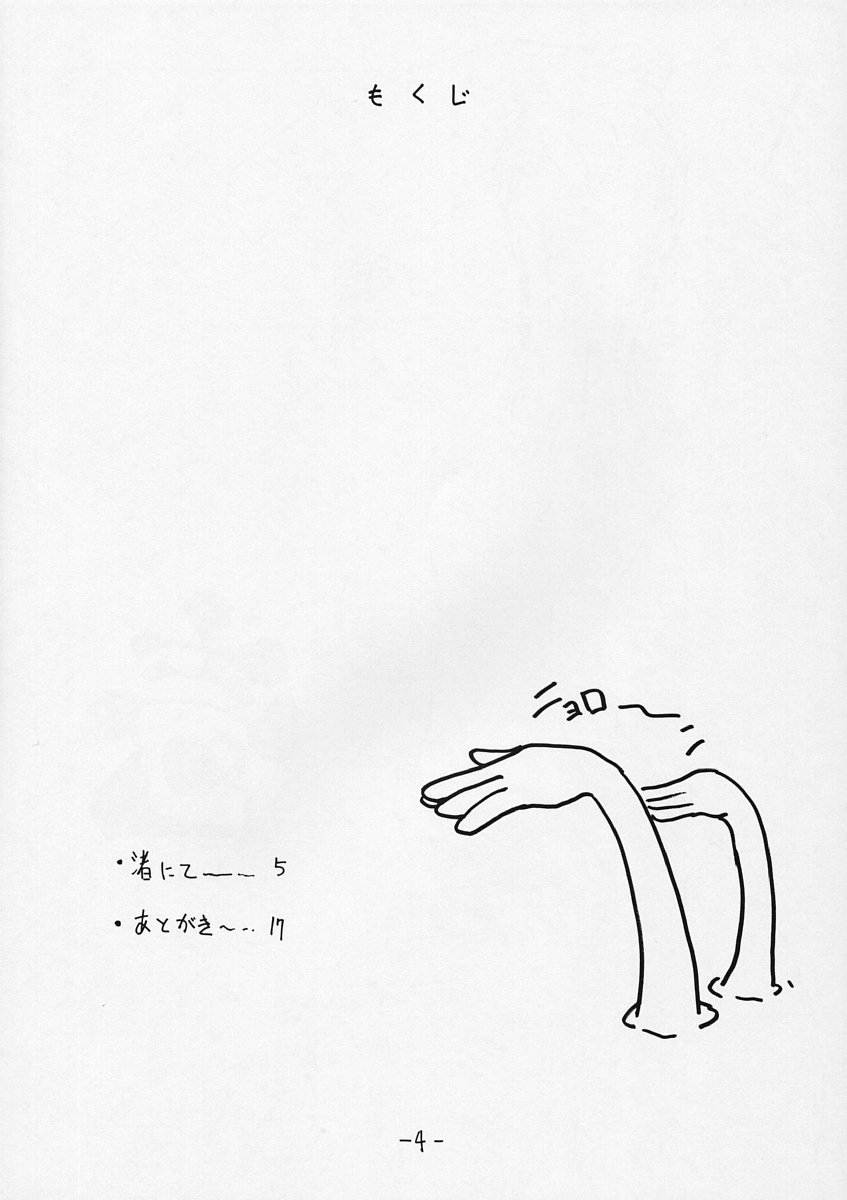 もくじ
ニョロ〜
・渚にて〜〜 5
・あとがき〜‥ 17
-4-